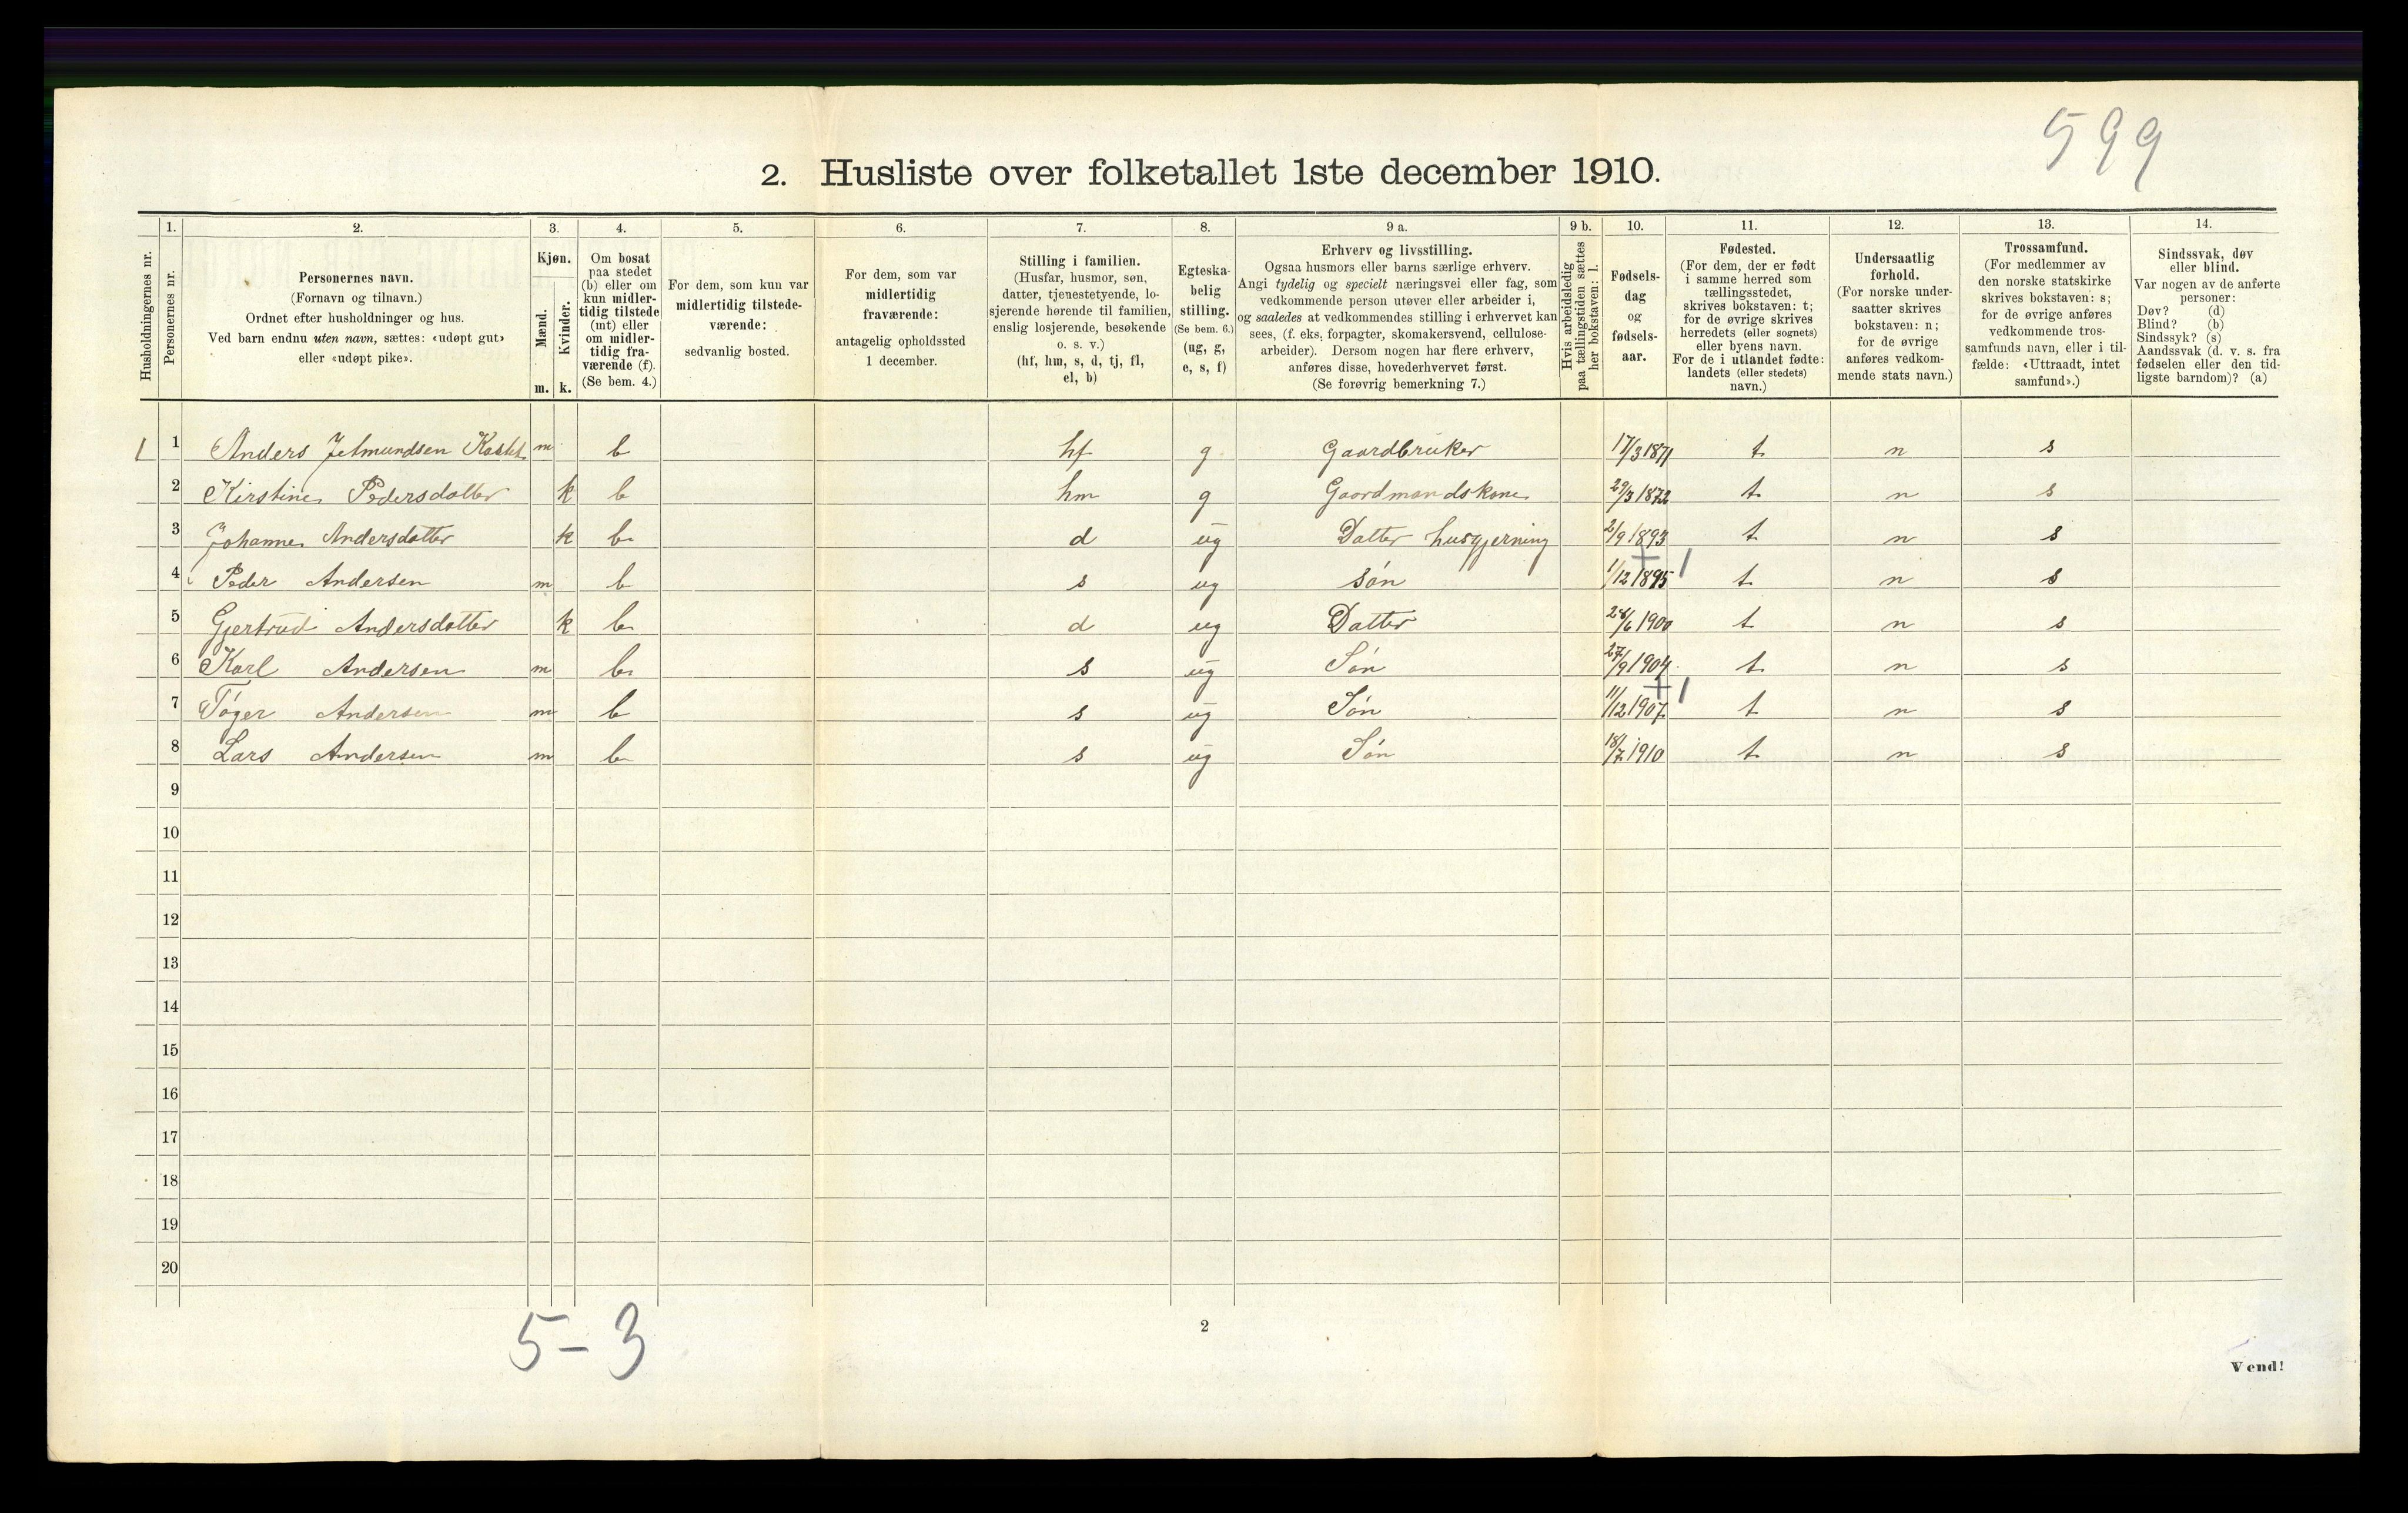 599
2. Husliste over folketallet 1ste december 1910.
Husholdningernes nr.
1.
Personernes nr.
2.
Personernes navn.
(Fornavn og tilnavn.)
Ordnet efter husholdninger og hus.
Ved barn endnu uten navn, sættes: «udøpt gut»
eller «udøpt pike».
3.
Kjøn.
Mænd.
m.
Kvinder.
k.
4.
Om bosat
paa stedet
(b) eller om
kun midler-
tidig tilstede
(mt) eller
om midler-
tidig fra-
værende (f).
(Se bem. 4.)
5.
For dem, som kun var
midlertidig tilstede-
værende:
sedvanlig bosted.
6.
For dem, som var
midlertidig
fraværende:
antagelig opholdssted
1 december.
7.
Stilling i familien.
(Husfar, husmor, søn,
datter, tjenestetyende, lo-
sjerende hørende til familien,
enslig losjerende, besøkende
o. s. v.)
(hf, hm, s, d, tj, fl,
el, b)
8.
Egteska-
belig
stilling.
(Se bem. 6.)
(ug, g,
e, s, f)
9 a.
Erhverv og livsstilling.
Ogsaa husmors eller barns særlige erhverv.
Angi tydelig og specielt næringsvei eller fag, som
vedkommende person utøver eller arbeider i,
og saaledes at vedkommendes stilling i erhvervet kan
sees, (f. eks. forpagter, skomakersvend, cellulose-
arbeider). Dersom nogen har flere erhverv,
anføres disse, hovederhvervet først.
(Se forøvrig bemerkning 7.)
9 b.
Hvis arbeidsledig
paa tællingstiden sættes
her bokstaven: l.
10.
Fødsels-
dag
og
fødsels-
aar.
11.
Fødested.
(For dem, der er født
i samme herred som
tællingsstedet,
skrives bokstaven: t;
for de øvrige skrives
herredets (eller sognets)
eller byens navn.
For de i utlandet fødte:
landets (eller stedets)
navn.)
12.
Undersaatlig
forhold.
(For norske under-
saatter skrives
bokstaven: n;
for de øvrige
anføres vedkom-
mende stats navn.)
13.
Trossamfund.
(For medlemmer av
den norske statskirke
skrives bokstaven: s;
for de øvrige anføres
vedkommende tros-
samfunds navn, eller i til-
fælde: «Uttraadt, intet
samfund».)
14.
Sindssvak, døv
eller blind.
Var nogen av de anførte
personer:
Døv? (d)
Blind? (b)
Sindssyk? (s)
Aandssvak (d. v. s. fra
fødselen eller den tid-
ligste barndom)? (a)
1 1 Anders Jetmundsen m b hf g Gaardbruker 17/3 1871 t n s
2 Kirstine Pedersdatter k b hm g Gaardmandskone 1872 t n s
3 Johanne Andersdatter k b d ug Datter husgjerning 2/9 1893 t n s
4 Peder Andersen m b s ug søn 1/12 1895 + 1 t n s
5 Gjertrud Andersdatter k b d ug Datter 28/6 1900 t n s
6 Karl Andersen m b s ug Søn 27/9 1904 t n s
7 Tøger Andersen m b s ug Søn 11/12 1907 + 1 t n s
8 Lars Andersen m b s ug Søn 18/7 1910 t n s
9
10
11
12
13
14
15
16
17
18
19
20
5 - 3
2
Vend!